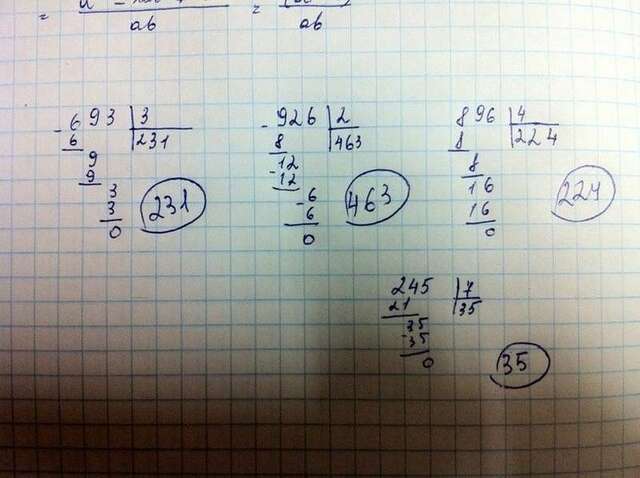 =
ab
=
ab
- 693 | 3
6 | 231
9
9
3
3
0
231
- 926 | 2
8 | 463
- 12
12
- 6
6
0
463
896 | 4
8 | 224
8
16
16
0
224
245 | 7
21 | 35
- 35
35
0
35